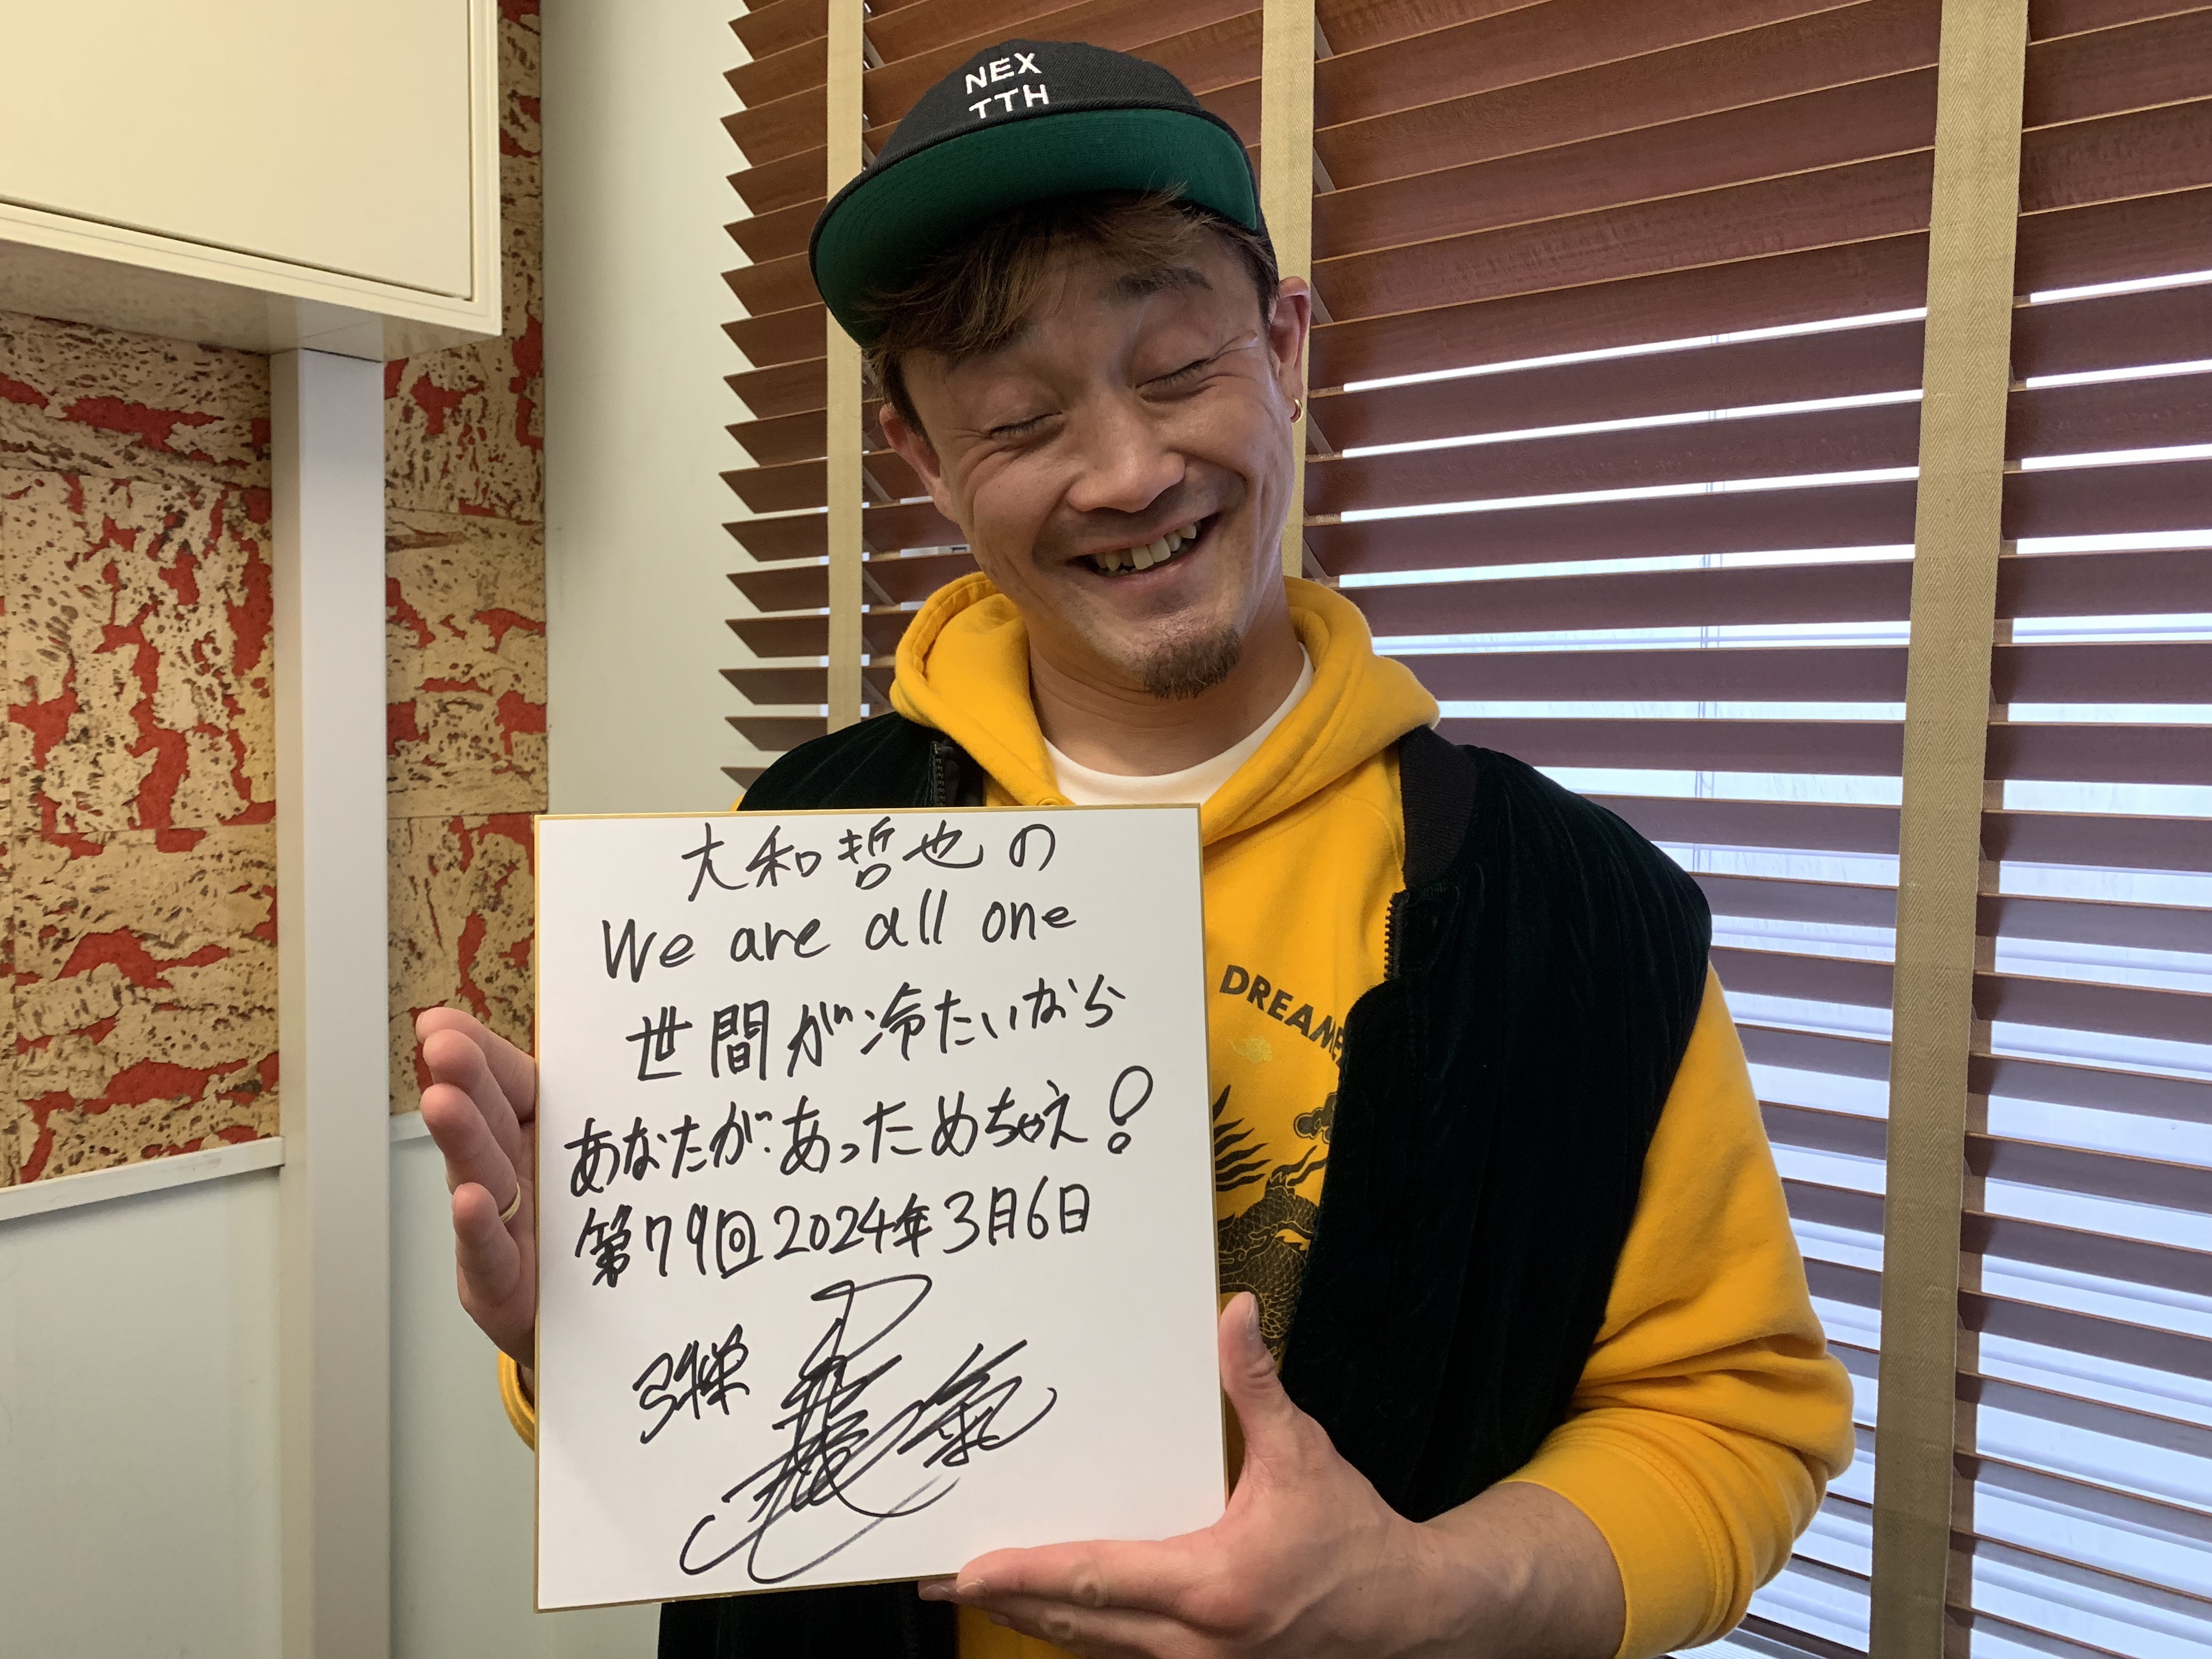 NEX
TTH
大和哲也の
We are all one
世間が冷たいなら
あなたが、あっためちゃえ!
第79回2024年3月6日
DREAME